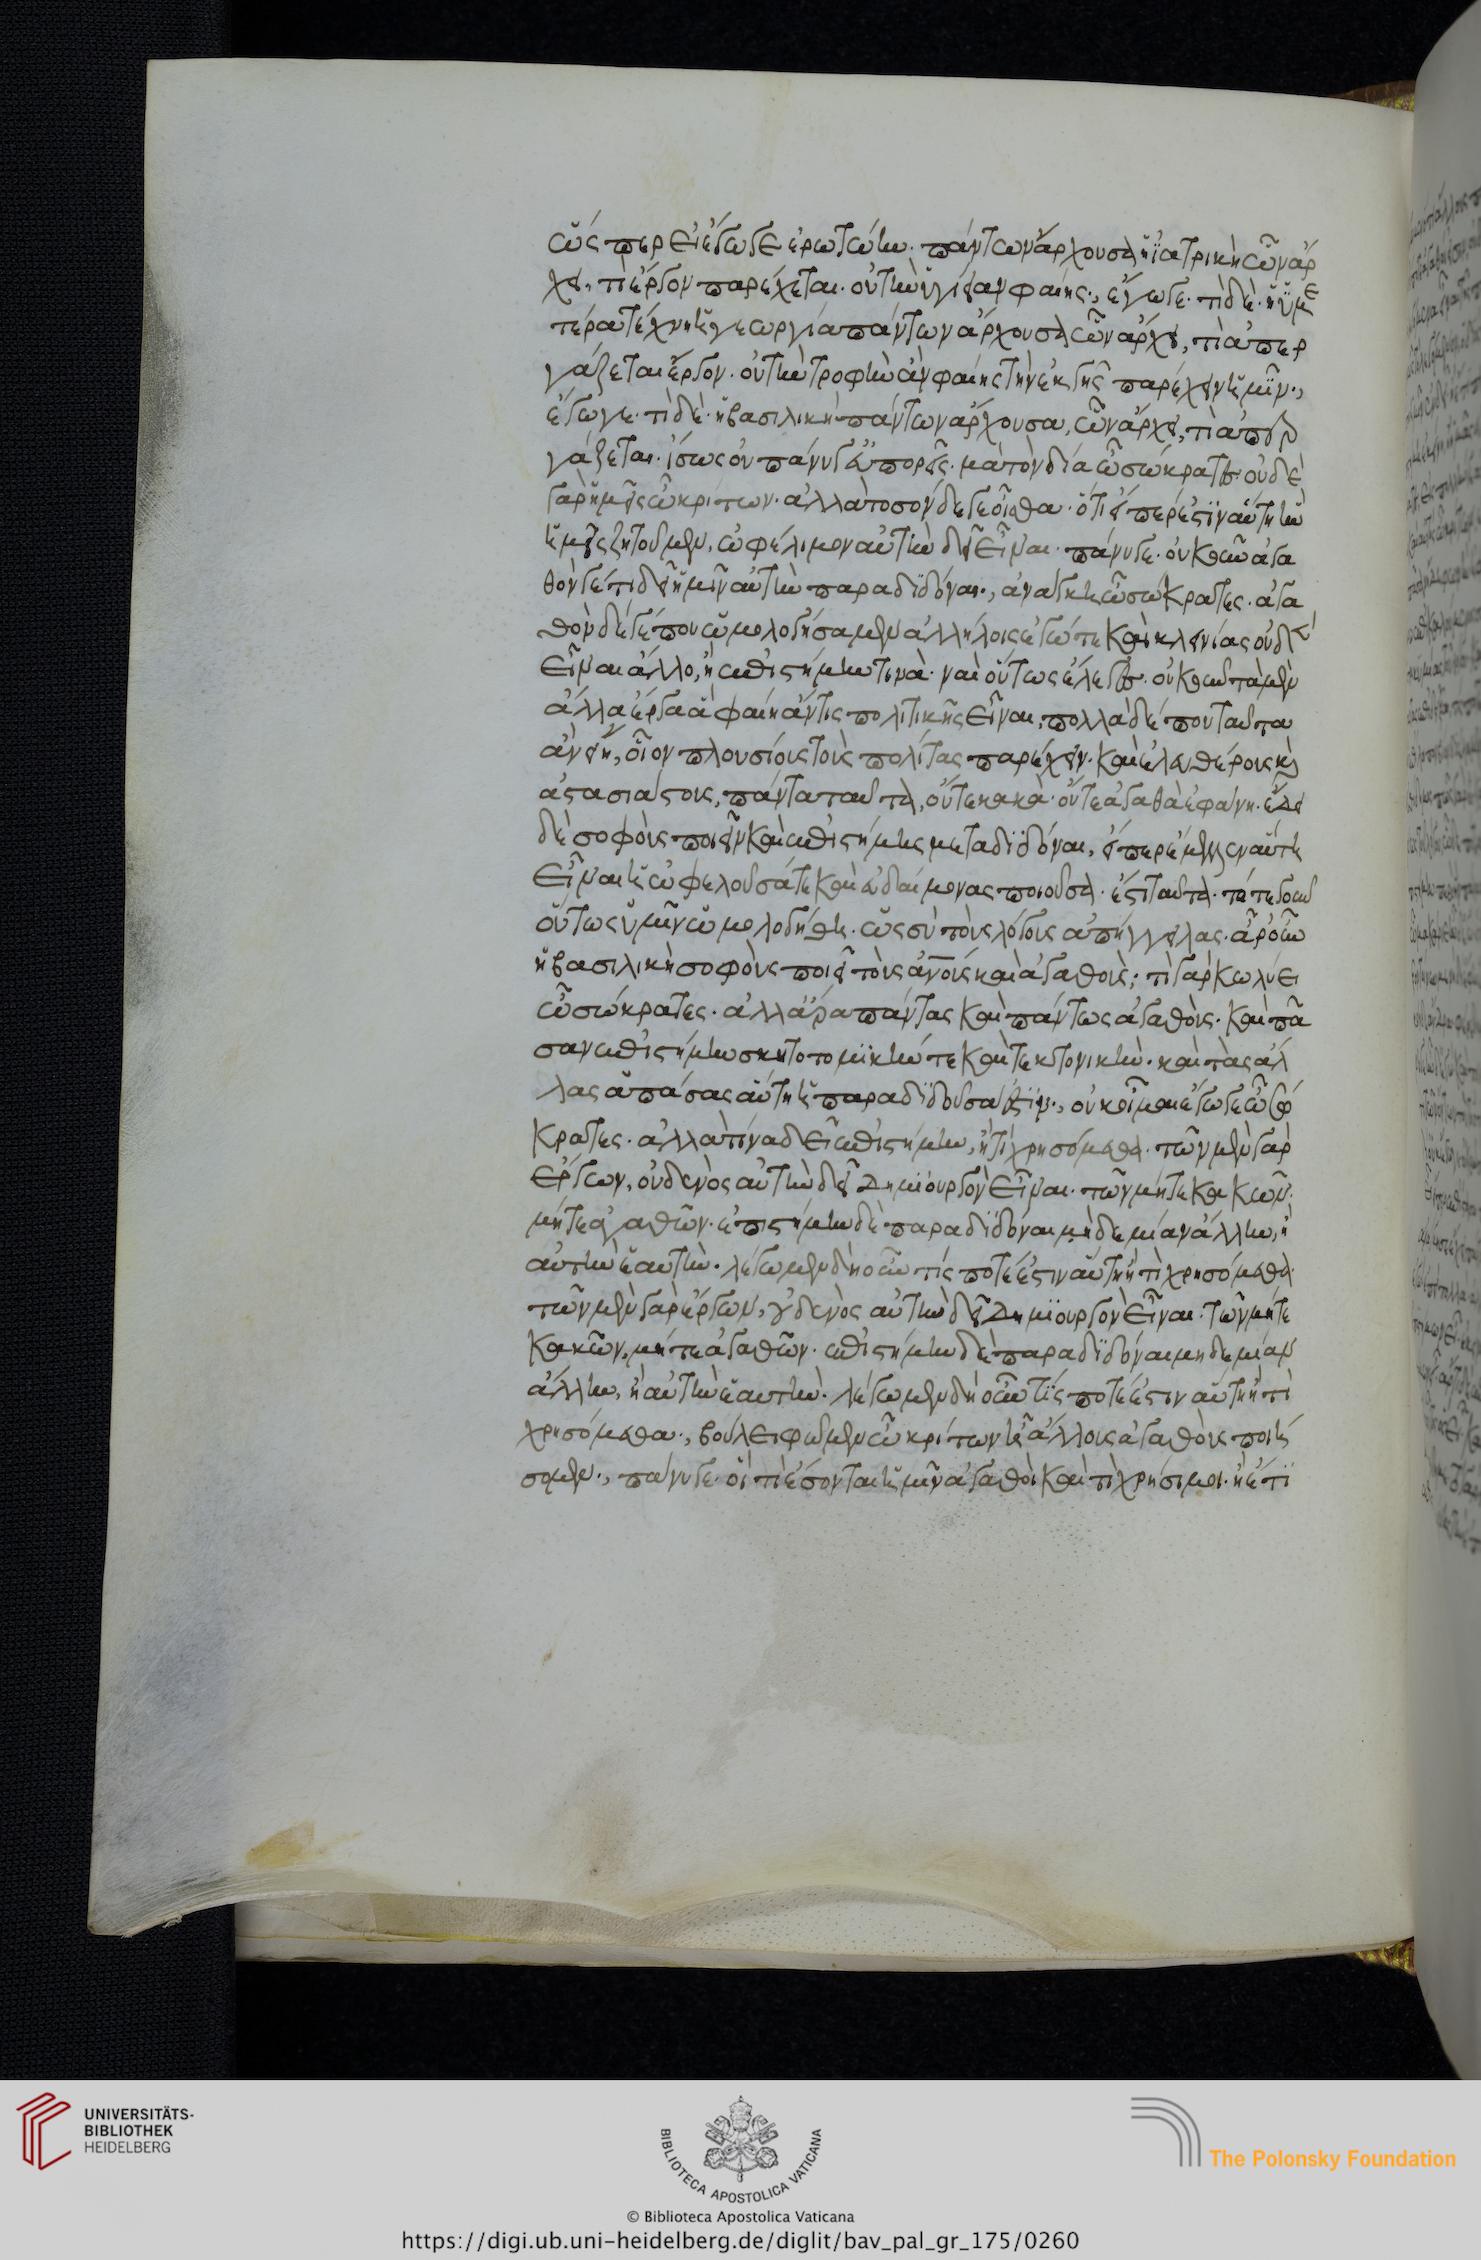 ὥς περ εἰ ἐγώ σε ἐρωτώην. πάντων ἄρχουσα ἡ ἰατρικὴ ὧν ἄρ
χει, τί ἔργον παρέχεται. οὐ τὴν ὑγίειαν φαίης., ἔγωγε. τί δὲ. ἡ ὑμε
τέρα τέχνη ἡ γεωργία πάντων ἄρχουσα ὧν ἄρχει, τί ἀπερ
γάζεται ἔργον. οὐ τὴν τροφὴν ἂν φαίης τὴν ἐκ γῆς παρέχειν ἡμῖν.,
ἔγωγε. τί δὲ. ἡ βασιλικὴ πάντων ἄρχουσα, ὧν ἄρχει, τί ἀπερ
γάζεται. ἴσως οὐ πάνυ γ' εὐπορεῖς. μὰ τὸν δία ὦ σώκρατες. οὐδὲ
γὰρ ἡμεῖς ὦ κρίτων. ἀλλὰ τοσόνδε γε οἶσθα. ὅτι εἴπερ ἐστὶν αὕτη ἣν
ἡμεῖς ζητοῦμεν, ὠφέλιμον αὐτὴν δεῖ εἶναι. πάνυ γε. οὐκοῦν ἀγα
θόν γέ τι δεῖ ἡμῖν αὐτὴν παραδιδόναι., ἀνάγκη ὦ σώκρατες. ἀγα
θὸν δέ γέ που ὡμολογήσαμεν ἀλλήλοις ἐγώ τε καὶ κλεινίας οὐδὲν
εἶναι ἄλλο, ἢ ἐπιστήμην τινὰ. ναὶ οὕτως ἔλεγες. οὐκοῦν τὰ μὲν
ἄλλα ἔργα ἃ φαίη ἄν τις πολιτικῆς εἶναι, πολλὰ δέ που ταῦτα
ἂν εἴη, οἷον πλουσίους τοὺς πολίτας παρέχειν. καὶ ἐλευθέρους καὶ
ἀστασιάστους, πάντα ταῦτα, οὔτε κακὰ. οὔτε ἀγαθὰ ἐφάνη. ἔδει
δὲ σοφοὺς ποιεῖν καὶ ἐπιστήμης μεταδιδόναι, εἴπερ ἔμελλεν αὕτη
εἶναι ἡ ὠφελοῦσά τε καὶ εὐδαίμονας ποιοῦσα. ἔστι ταῦτα. τότε γοῦν
οὕτως ὑμῖν ὡμολογήθη. ὡς σὺ τοὺς λόγους ἀπήγγειλας. ἆρ' οὖν
ἡ βασιλικὴ σοφοὺς ποιεῖ τοὺς ἀνους καὶ ἀγαθοὺς; τί γὰρ κωλύει
ὦ σώκρατες. ἀλλ' ἆρα πάντας καὶ πάντως ἀγαθοὺς. καὶ πᾶ
σαν ἐπιστήμην σκυτοτομικήν τε καὶ τεκτονικὴν. καὶ τὰς ἄλ
λας ἁπάσας αὕτη ἡ παραδιδοῦσά ἐστιν., οὐκ οἶμαι ἔγωγε ὦ σώ
κρατες. ἀλλὰ τίνα δεῖ ἐπιστήμην, ᾗ τί χρησόμεθα. τῶν μὲν γὰρ
ἔργων, οὐδενὸς αὐτὴν δεῖ δημιουργὸν εἶναι. τῶν μήτε κακῶν.
μήτε ἀγαθῶν. ἐπιστήμην δὲ παραδιδόναι μηδεμίαν ἄλλην, ἢ
αὐτὴν ἑαυτὴν. λέγωμεν δὴ οὖν τίς ποτέ ἐστιν αὕτη ᾗ τί χρησόμεθα.
τῶν μὲν γὰρ ἔργων, οὐδενὸς αὐτὴν δεῖ δημιουργὸν εἶναι. τῶν μήτε
κακῶν, μήτε ἀγαθῶν. ἐπιστήμην δὲ παραδιδόναι μηδεμίαν
ἄλλην, ἢ αὐτὴν ἑαυτὴν. λέγωμεν δὴ οὖν τίς ποτέ ἐστιν αὕτη ᾗ τί
χρησόμεθα., βούλει φῶμεν ὦ κρίτων ᾗ ἄλλους ἀγαθοὺς ποιή
σομεν., πάνυ γε. οἳ τί ἔσονται ἡμῖν ἀγαθοὶ καὶ τί χρήσιμοι. ἢ ἔτι
UNIVERSITÄTS-
BIBLIOTHEK
HEIDELBERG
BIBLIOTECA APOSTOLICA VATICANA
The Polonsky Foundation
© Biblioteca Apostolica Vaticana
https://digi.ub.uni-heidelberg.de/diglit/bav_pal_gr_175/0260